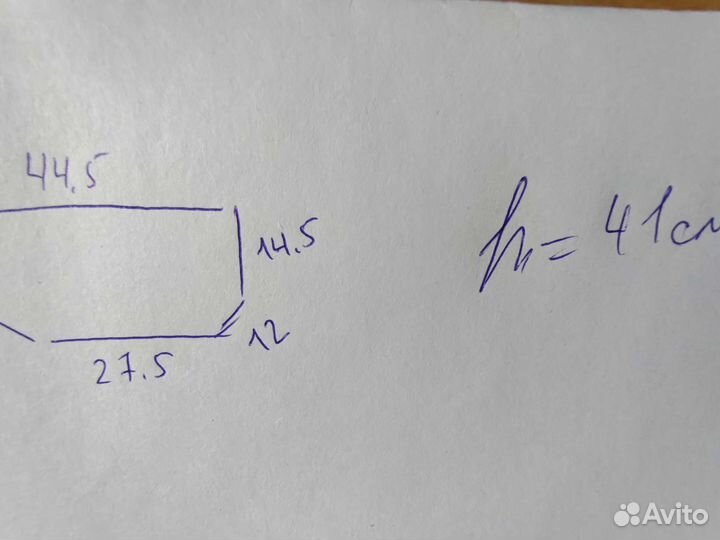 44.5
14.5
h = 41см
12
27.5
Avito